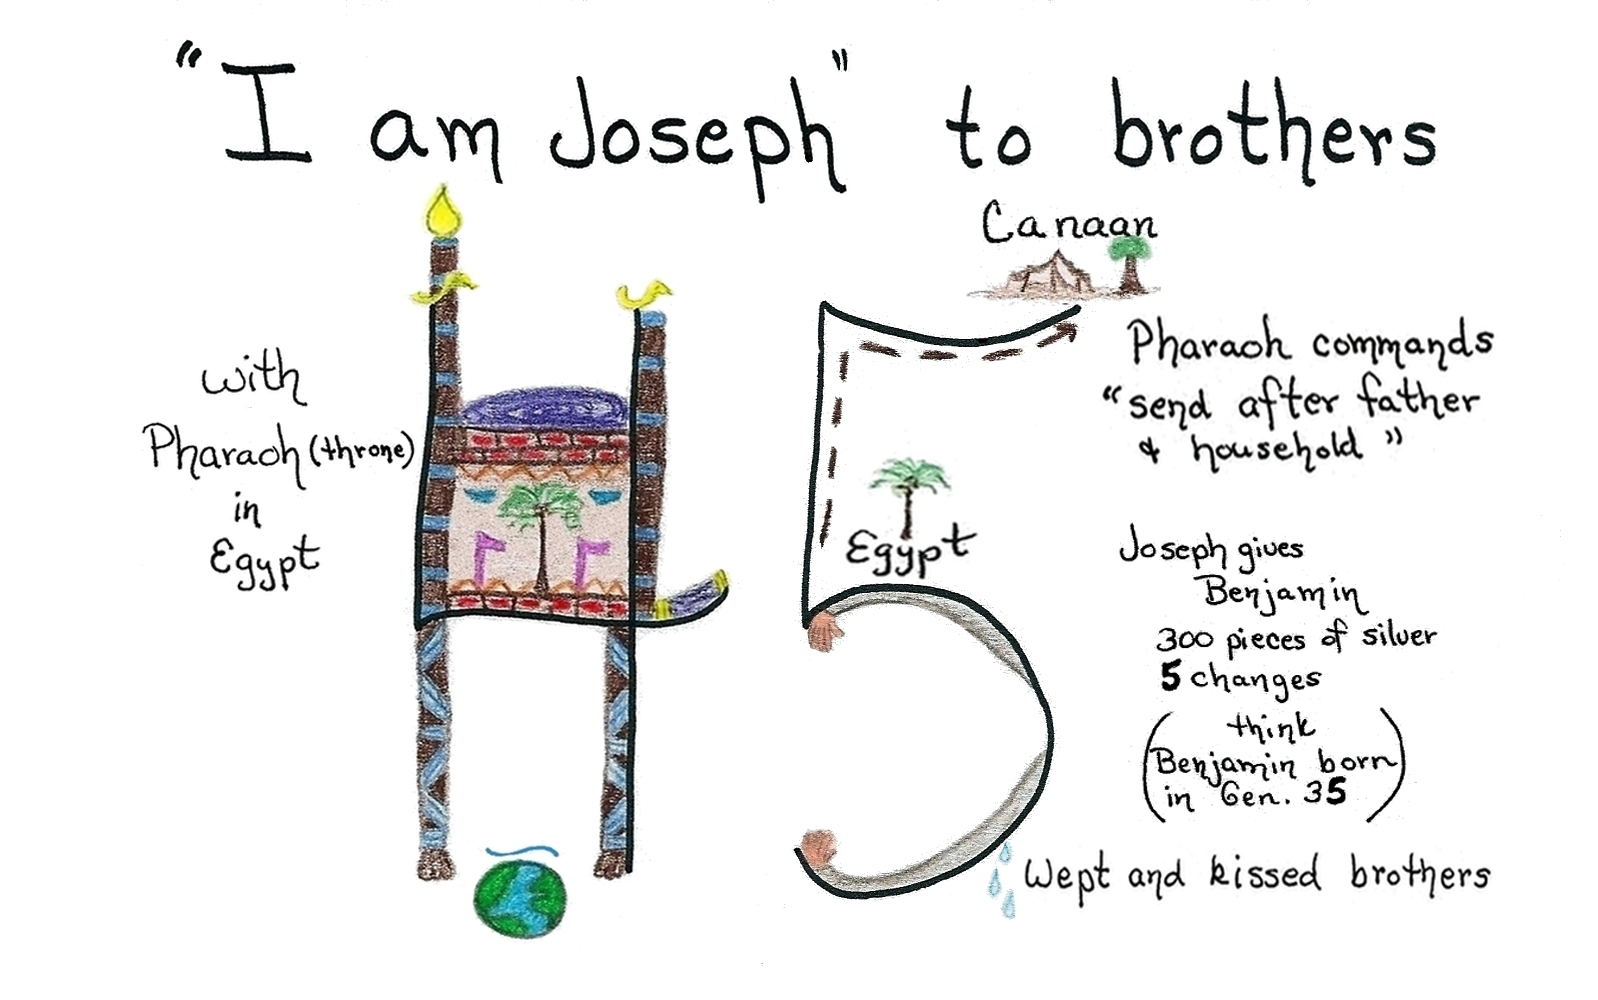 "I am Joseph" to brothers
Canaan
with
Pharaoh (throne)
in
Egypt
Pharaoh commands
"send after father
& household"
Egypt
Joseph gives
Benjamin
300 pieces of silver
5 changes
(think
Benjamin born
in Gen. 35)
Wept and kissed brothers
45